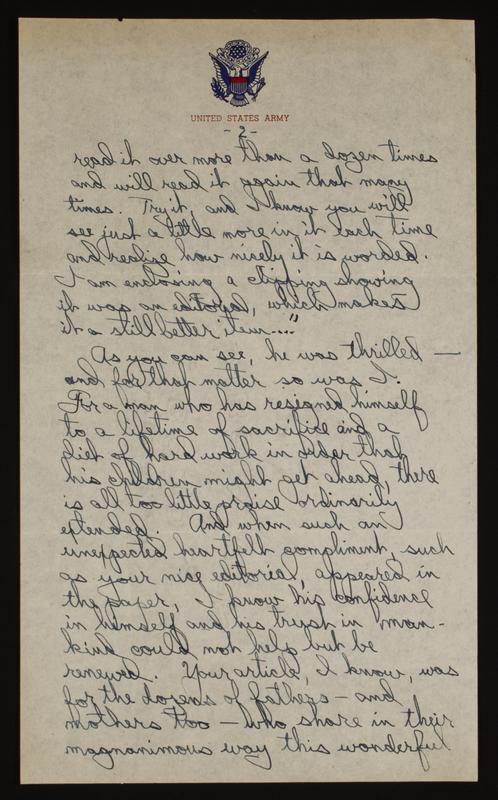 UNITED STATES ARMY
- 2 -
read it over more than a dozen times
and will read it again that many
times. Try it, and I know you will
see just a little more in it each time
and realize how nicely it is worded.
I am enclosing a clipping showing
it was an editorial, which makes
it a still better item...."
As you can see, he was thrilled —
and for that matter so was I.
For a man who has resigned himself
to a lifetime of sacrifice and a
diet of hard work in order that
his children might get ahead, there
is all too little praise ordinarily
extended. And when such an
unexpected heartfelt compliment, such
as your nice editorial, appeared in
the paper, I know his confidence
in himself and his trust in man-
kind could not help but be
renewed. Your article, I know, was
for the dozens of fathers — and
mothers too — who share in their
magnanimous way this wonderful